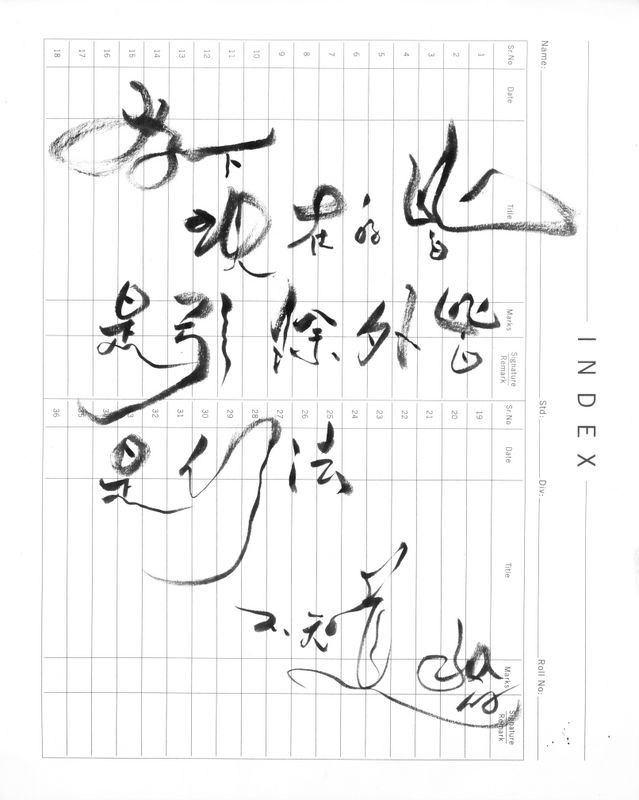 INDEX
Name: Std: Div: Roll No:
Sr.No Date Title Marks Signature Remark Sr.No Date Title Marks Signature Remark
1 19
2 20
3 21
4 22
5 23
6 24
7 25
8 26
9 27
10 28
11 29
12 30
13 31
14 32
15 33
16 34
17 35
18 36
下
现在的皆
是引除外皆
是行法
不无道